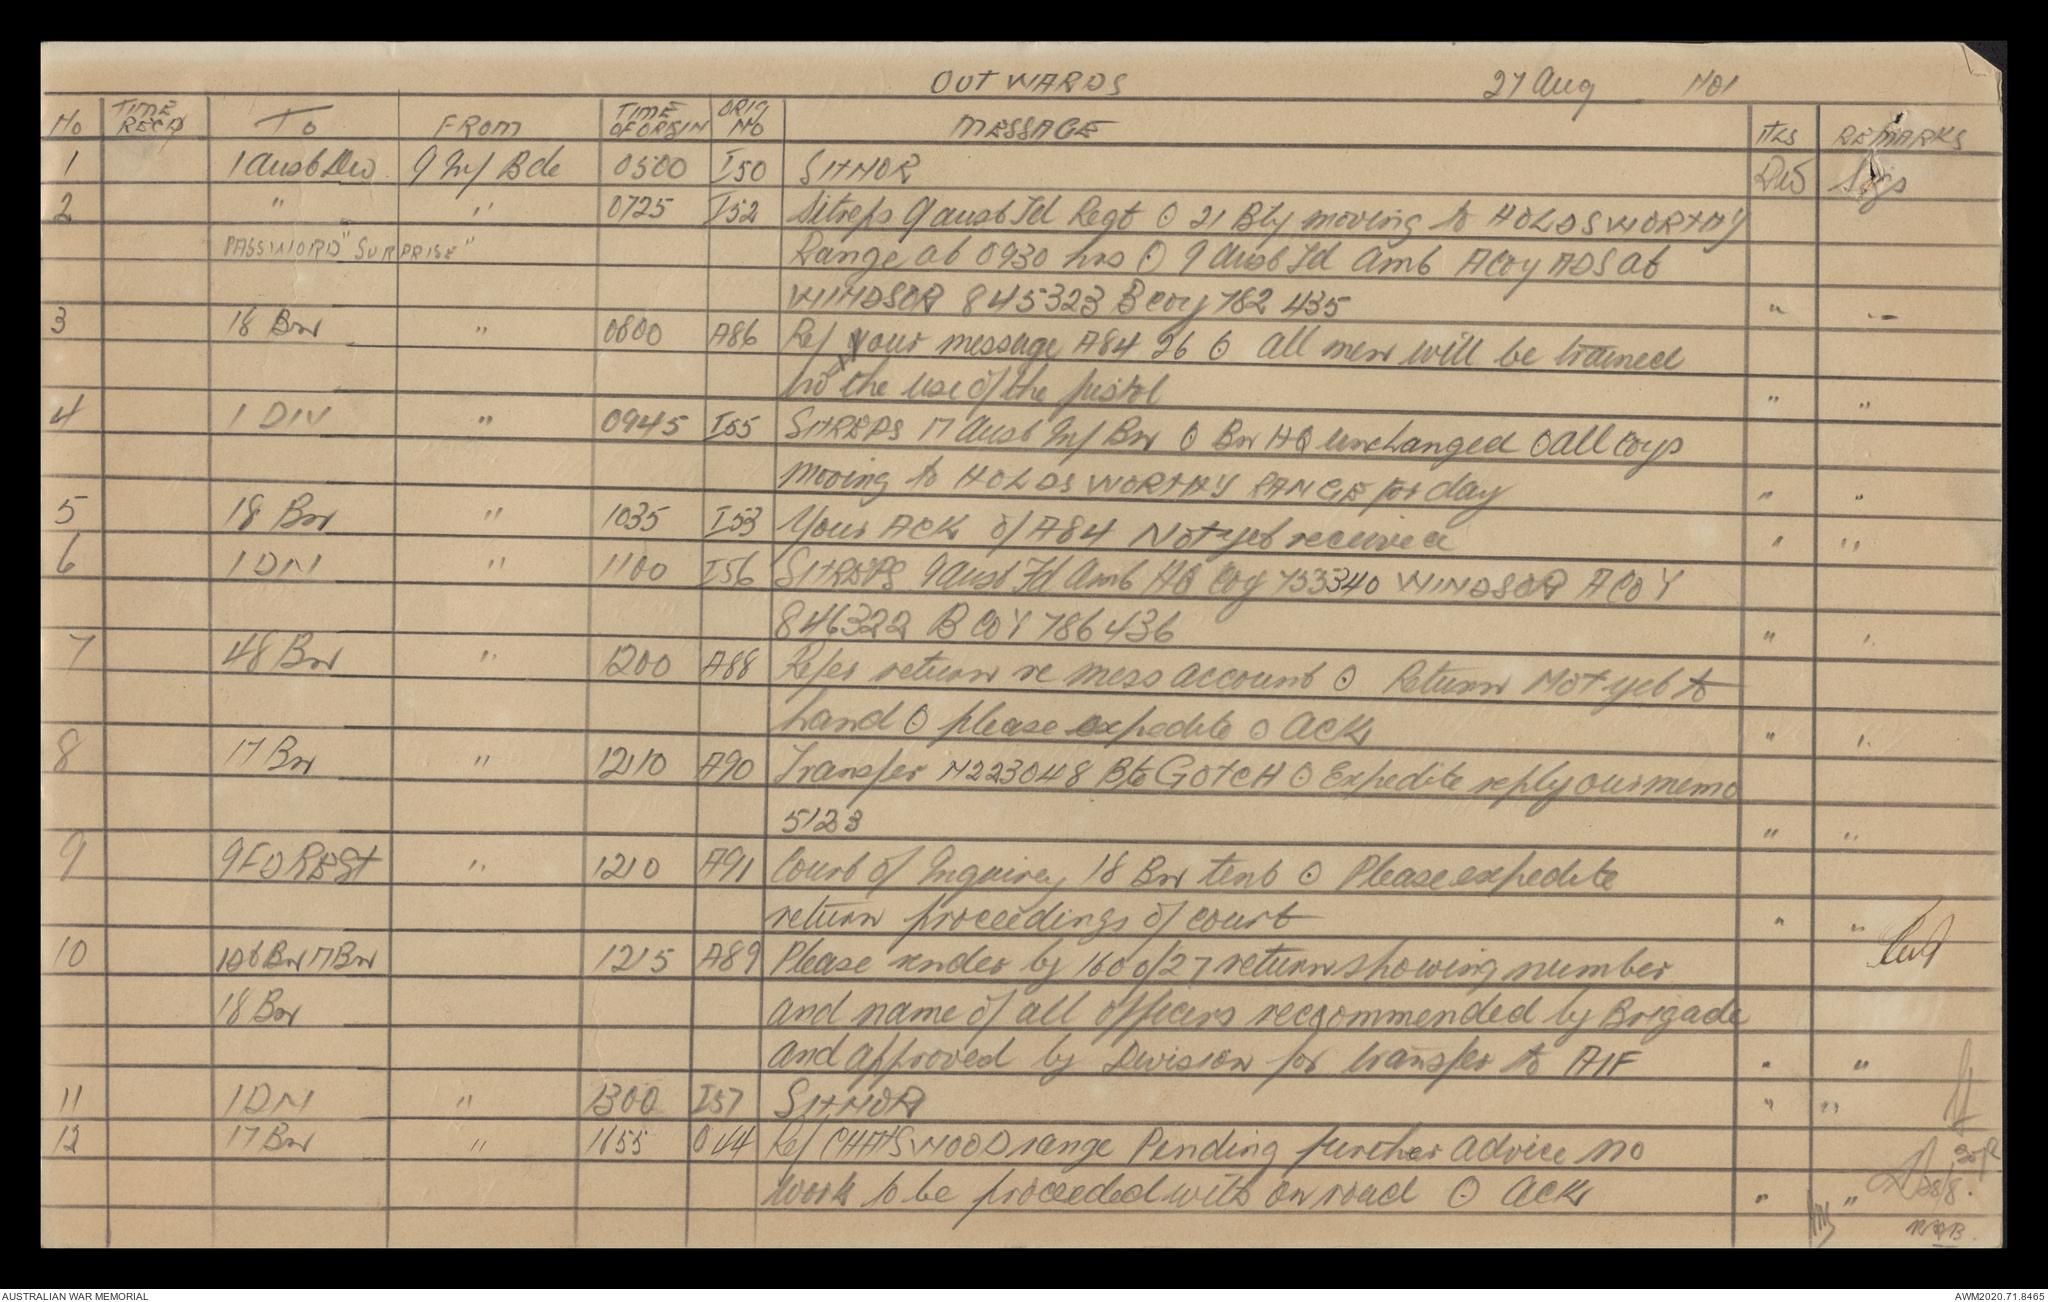 OUTWARDS 27 Aug No 1
No TIME RECD To FROM TIME OF ORIGIN ORIG NO MESSAGE ITLS REMARKS
1 1 Aust Div 9 Inf Bde 0500 I50 SITNOR DW Sigs
2 " " 0725 I52 Sitreps 9 Aust Fd Regt ⊙ 21 Bty moving to HOLDSWORTHY
PASSWORD "SURPRISE" Range at 0930 hrs ⊙ 9 Aust Fd Amb A Coy ADS at
WINDSOR 845323 B coy 782 435 " "
3 18 Bn " 0800 A86 Ref your message A84 26 ⊙ all men will be trained
in the use of the pistol " "
4 1 DIV " 0945 I55 SITREPS 17 Aust Inf Bn ⊙ Bn HQ unchanged ⊙ All coys
moving to HOLDSWORTHY RANGE for day " "
5 18 Bn " 1035 I53 Your ACK of A84 Not yet received " "
6 1 DIV " 1100 I56 SITREPS 9 Aust Fd Amb HQ Coy 733340 WINDSOR A COY
846322 B COY 786436 " "
7 48 Bn " 1200 A88 Refer return re mess account ⊙ Return Not yet to
hand ⊙ please expedite ⊙ ACK " "
8 17 Bn " 1210 A90 Transfer N223048 Pte GOTCH ⊙ Expedite reply our memo
5123 " "
9 9 FD REGT " 1210 A91 Court of Inquirey 18 Bn tent ⊙ Please expedite
return proceedings of court " "
10 Bn 17 Bn 1215 A89 Please render by 1600/27 return showing number
18 Bn and name of all officers reccommended by Brigade
and approved by Division for transfer to AIF " "
11 1 DIV " 1300 I57 SITNOR " "
12 17 Bn " 1655 O44 Ref CHATSWOOD range Pending further advice no
work to be proceeded with on road ⊙ ACK " "
28/8.
AUSTRALIAN WAR MEMORIAL AWM2020.71.8465